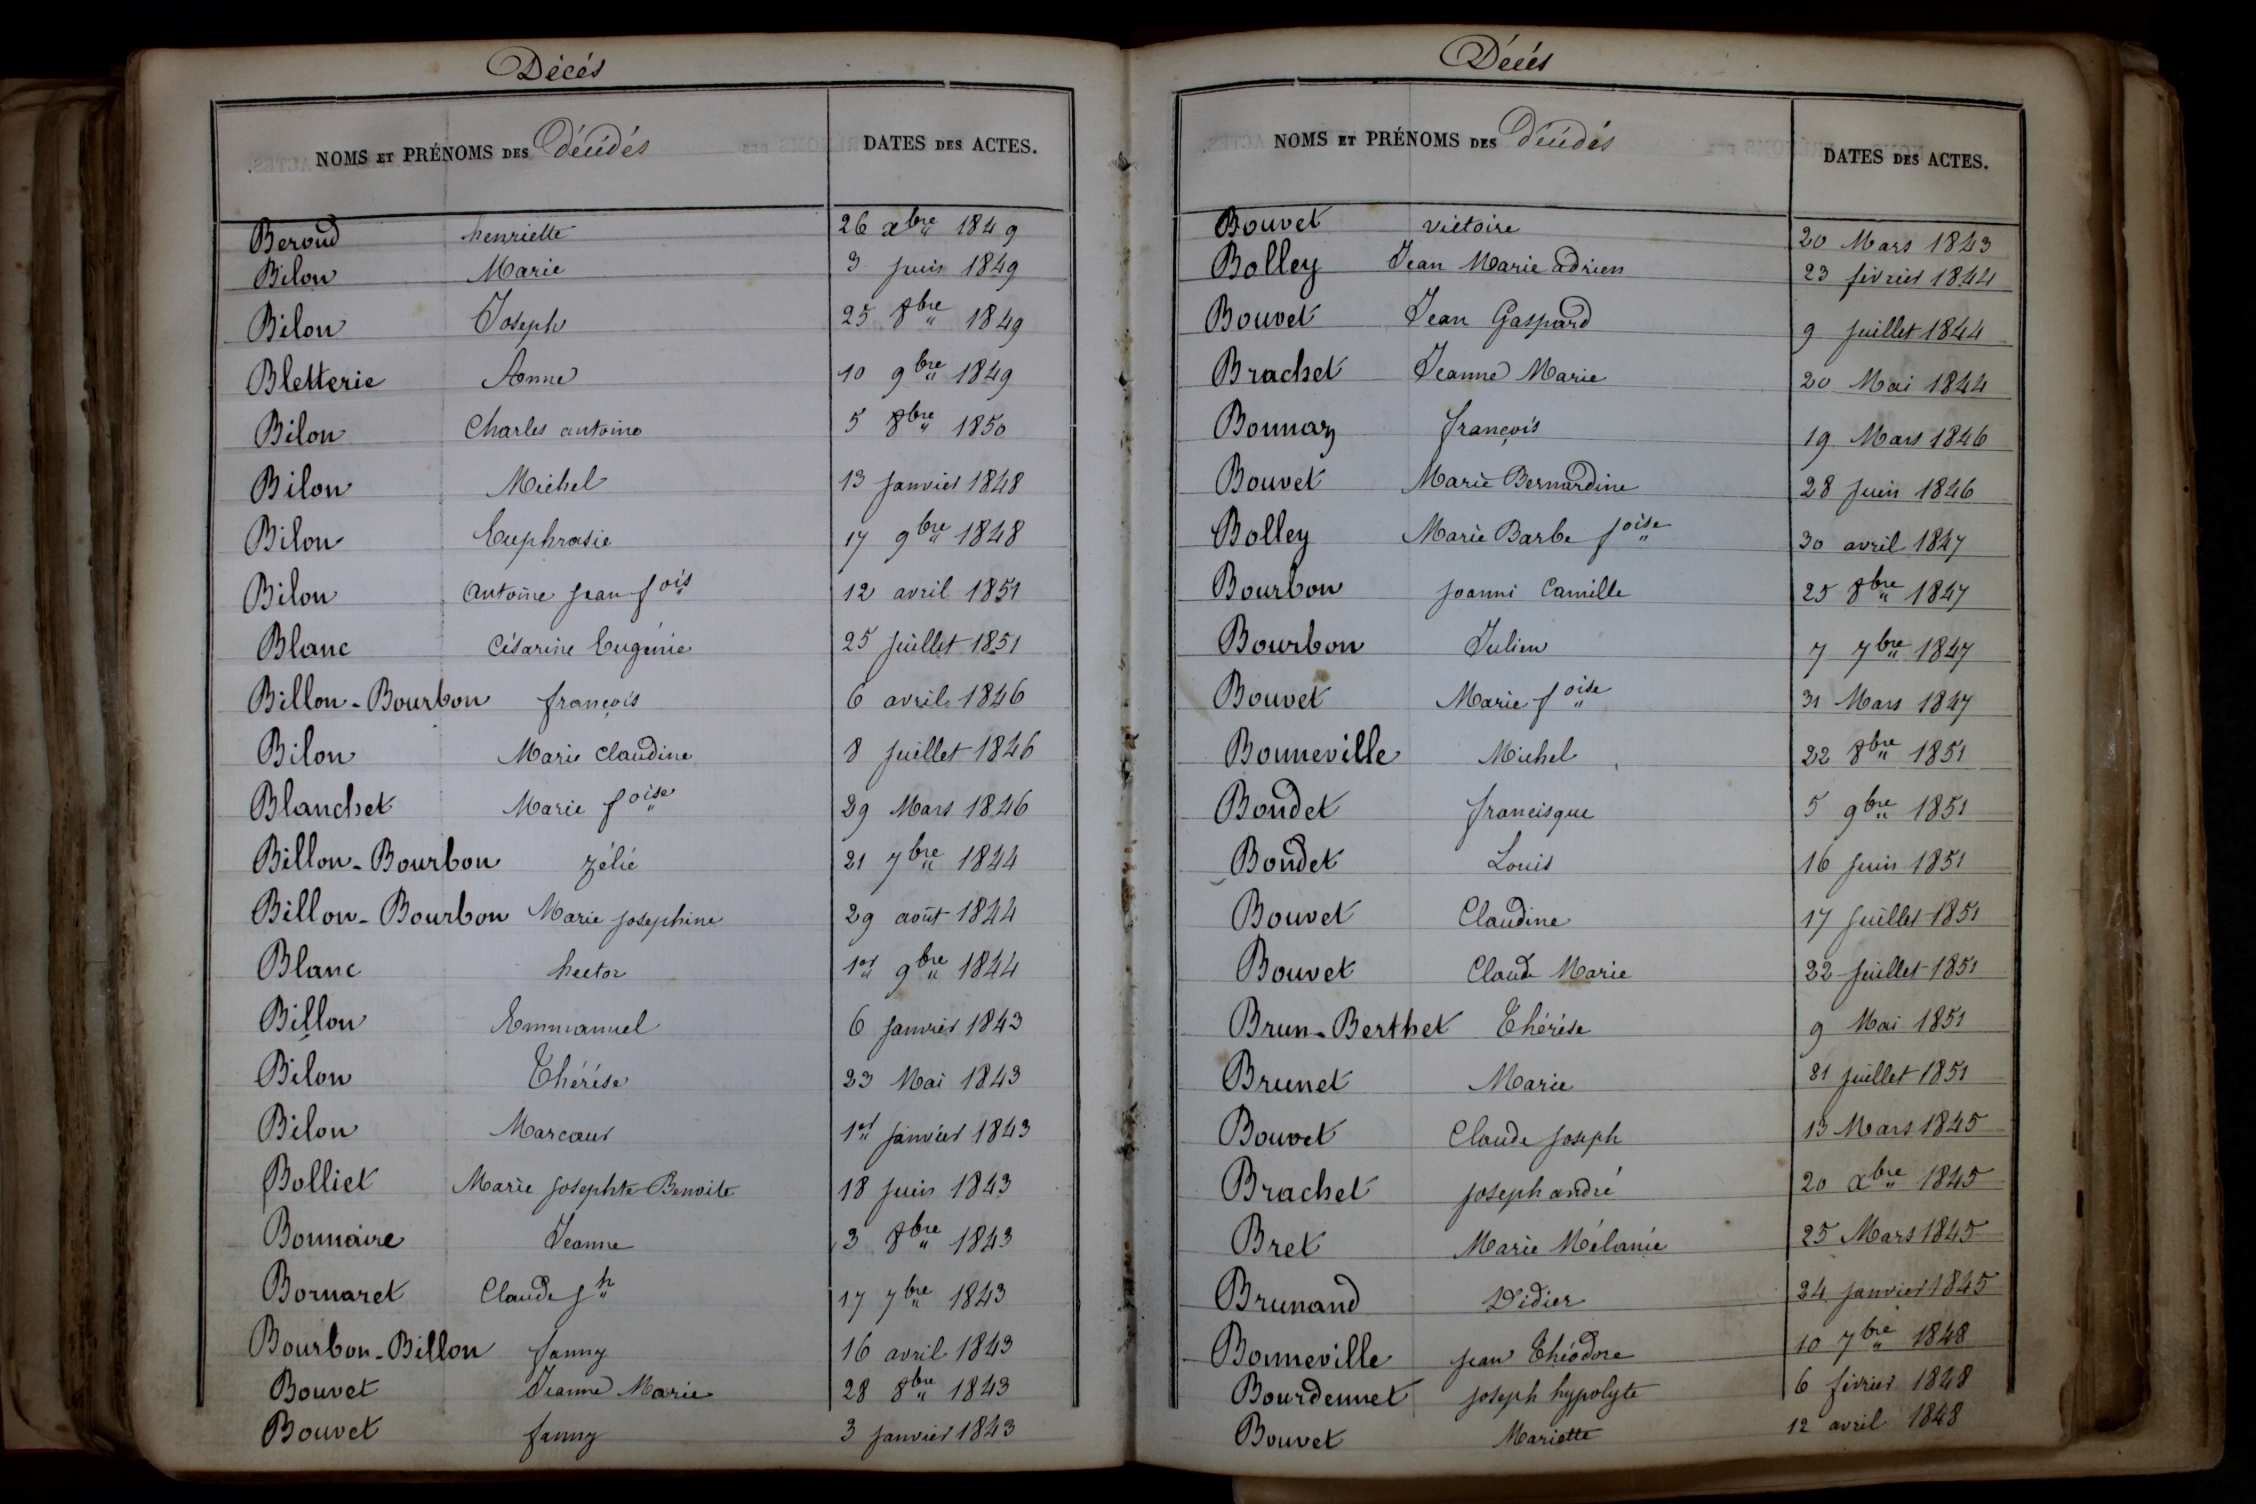 Décés
NOMS ET PRÉNOMS DES Décédés DATES DES ACTES.
Beroud henriette 26 xbre 1849
Bilon Marie 3 juin 1849
Bilon Joseph 25 8bre 1849
Bletterie Anne 10 9bre 1849
Bilon Charles antoine 5 8bre 1850
Bilon Michel 13 janvier 1848
Bilon Euphrasie 17 9bre 1848
Bilon antoine jean fois 12 avril 1851
Blanc Césarine Eugénie 25 juillet 1851
Billon-Bourbon françois 6 avril 1846
Bilon Marie claudine 8 juillet 1846
Blanchet Marie foise 29 Mars 1846
Billon-Bourbon zélie 21 7bre 1844
Billon-Bourbon Marie josephine 29 août 1844
Blanc hector 1er 9bre 1844
Billon Emmanuel 6 janvier 1843
Bilon Thérése 23 Mai 1843
Bilon Marcœur 1er janvier 1843
Bolliet Marie josephte Benoite 18 juin 1843
Bonnaire Jeanne 3 8bre 1843
Bornaret Claude jh 17 7bre 1843
Bourbon-Billon fanny 16 avril 1843
Bouvet Jeanne Marie 28 8bre 1843
Bouvet fanny 3 janvier 1843
Décés
NOMS ET PRÉNOMS DES Décédés DATES DES ACTES.
Bouvet victoire 20 Mars 1843
Bolley Jean Marie adrien 23 février 1844
Bouvet Jean Gaspard 9 juillet 1844
Brachet Jeanne Marie 20 Mai 1844
Bonnaz françois 19 Mars 1846
Bouvet Marie Bernardine 28 juin 1846
Bolley Marie Barbe foise 30 avril 1847
Bourbon joanni Camille 25 8bre 1847
Bourbon Julien 7 7bre 1847
Bouvet Marie foise 31 Mars 1847
Bonneville Michel 22 8bre 1851
Bondet francisque 5 9bre 1851
Bondet Louis 16 juin 1851
Bouvet Claudine 17 juillet 1851
Bouvet Claude Marie 22 juillet 1851
Brun-Berthet Thérése 9 Mai 1851
Brunet Marie 31 juillet 1851
Bouvet Claude joseph 13 Mars 1845
Brachet joseph andré 20 xbre 1845
Bret Marie Mélanie 25 Mars 1845
Brunand Didier 24 janvier 1845
Bonneville jean Théodore 10 7bre 1848
Bourdennet joseph hypolyte 6 février 1848
Bouvet Mariette 12 avril 1848